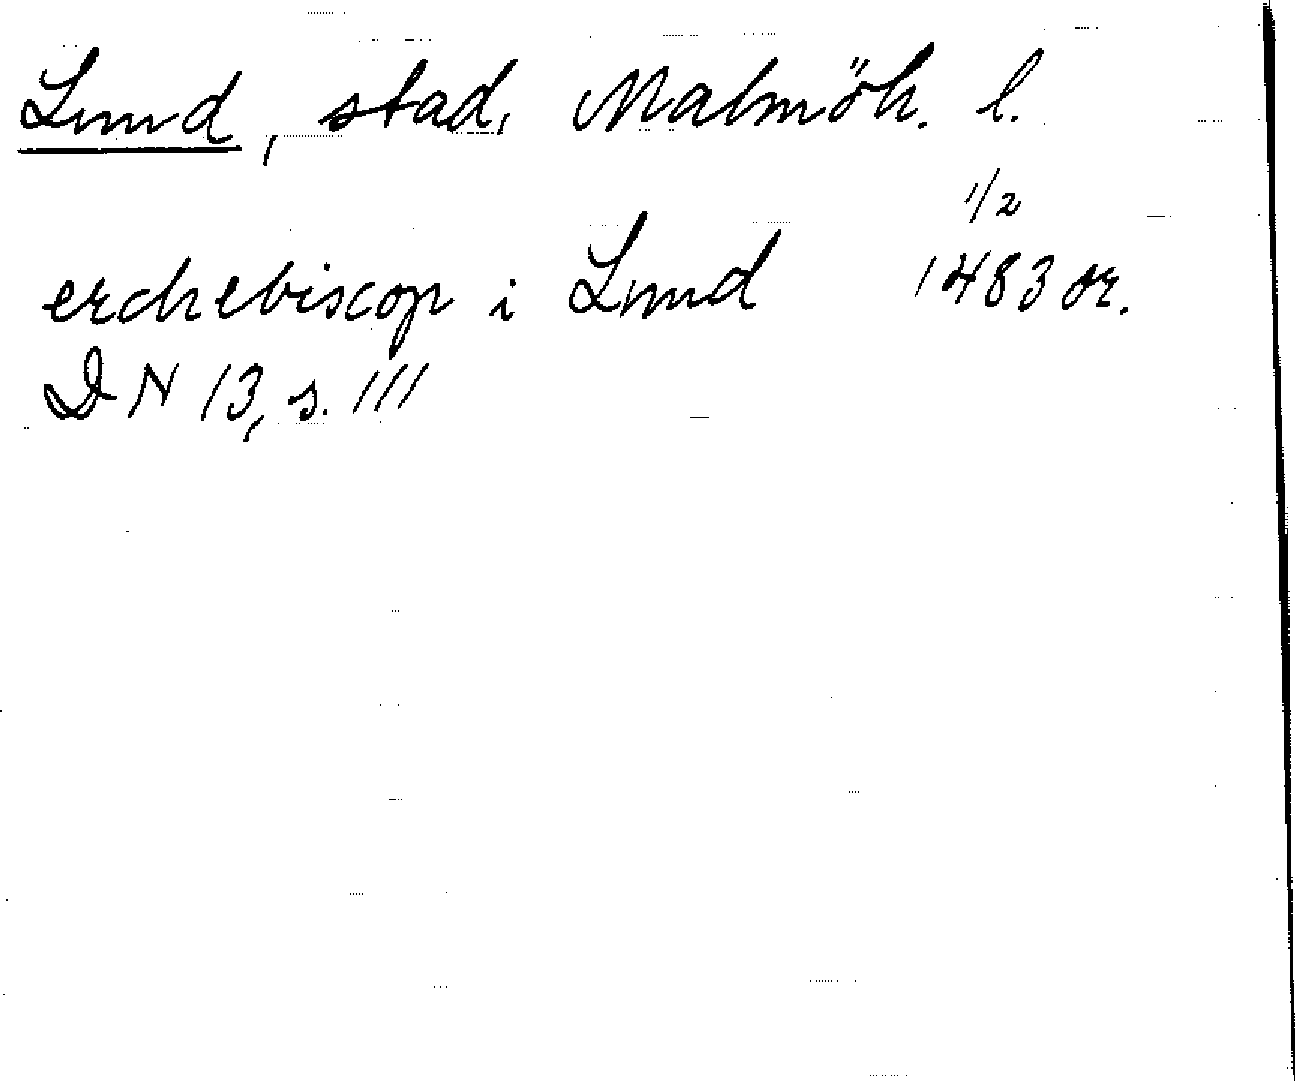 Lund, stad, Malmöh. l.
1/2
erchebiscop i Lund 1483 or.
DN 13, s. 111